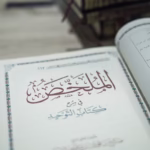 الملخص
في شرح
كتاب التوحيد